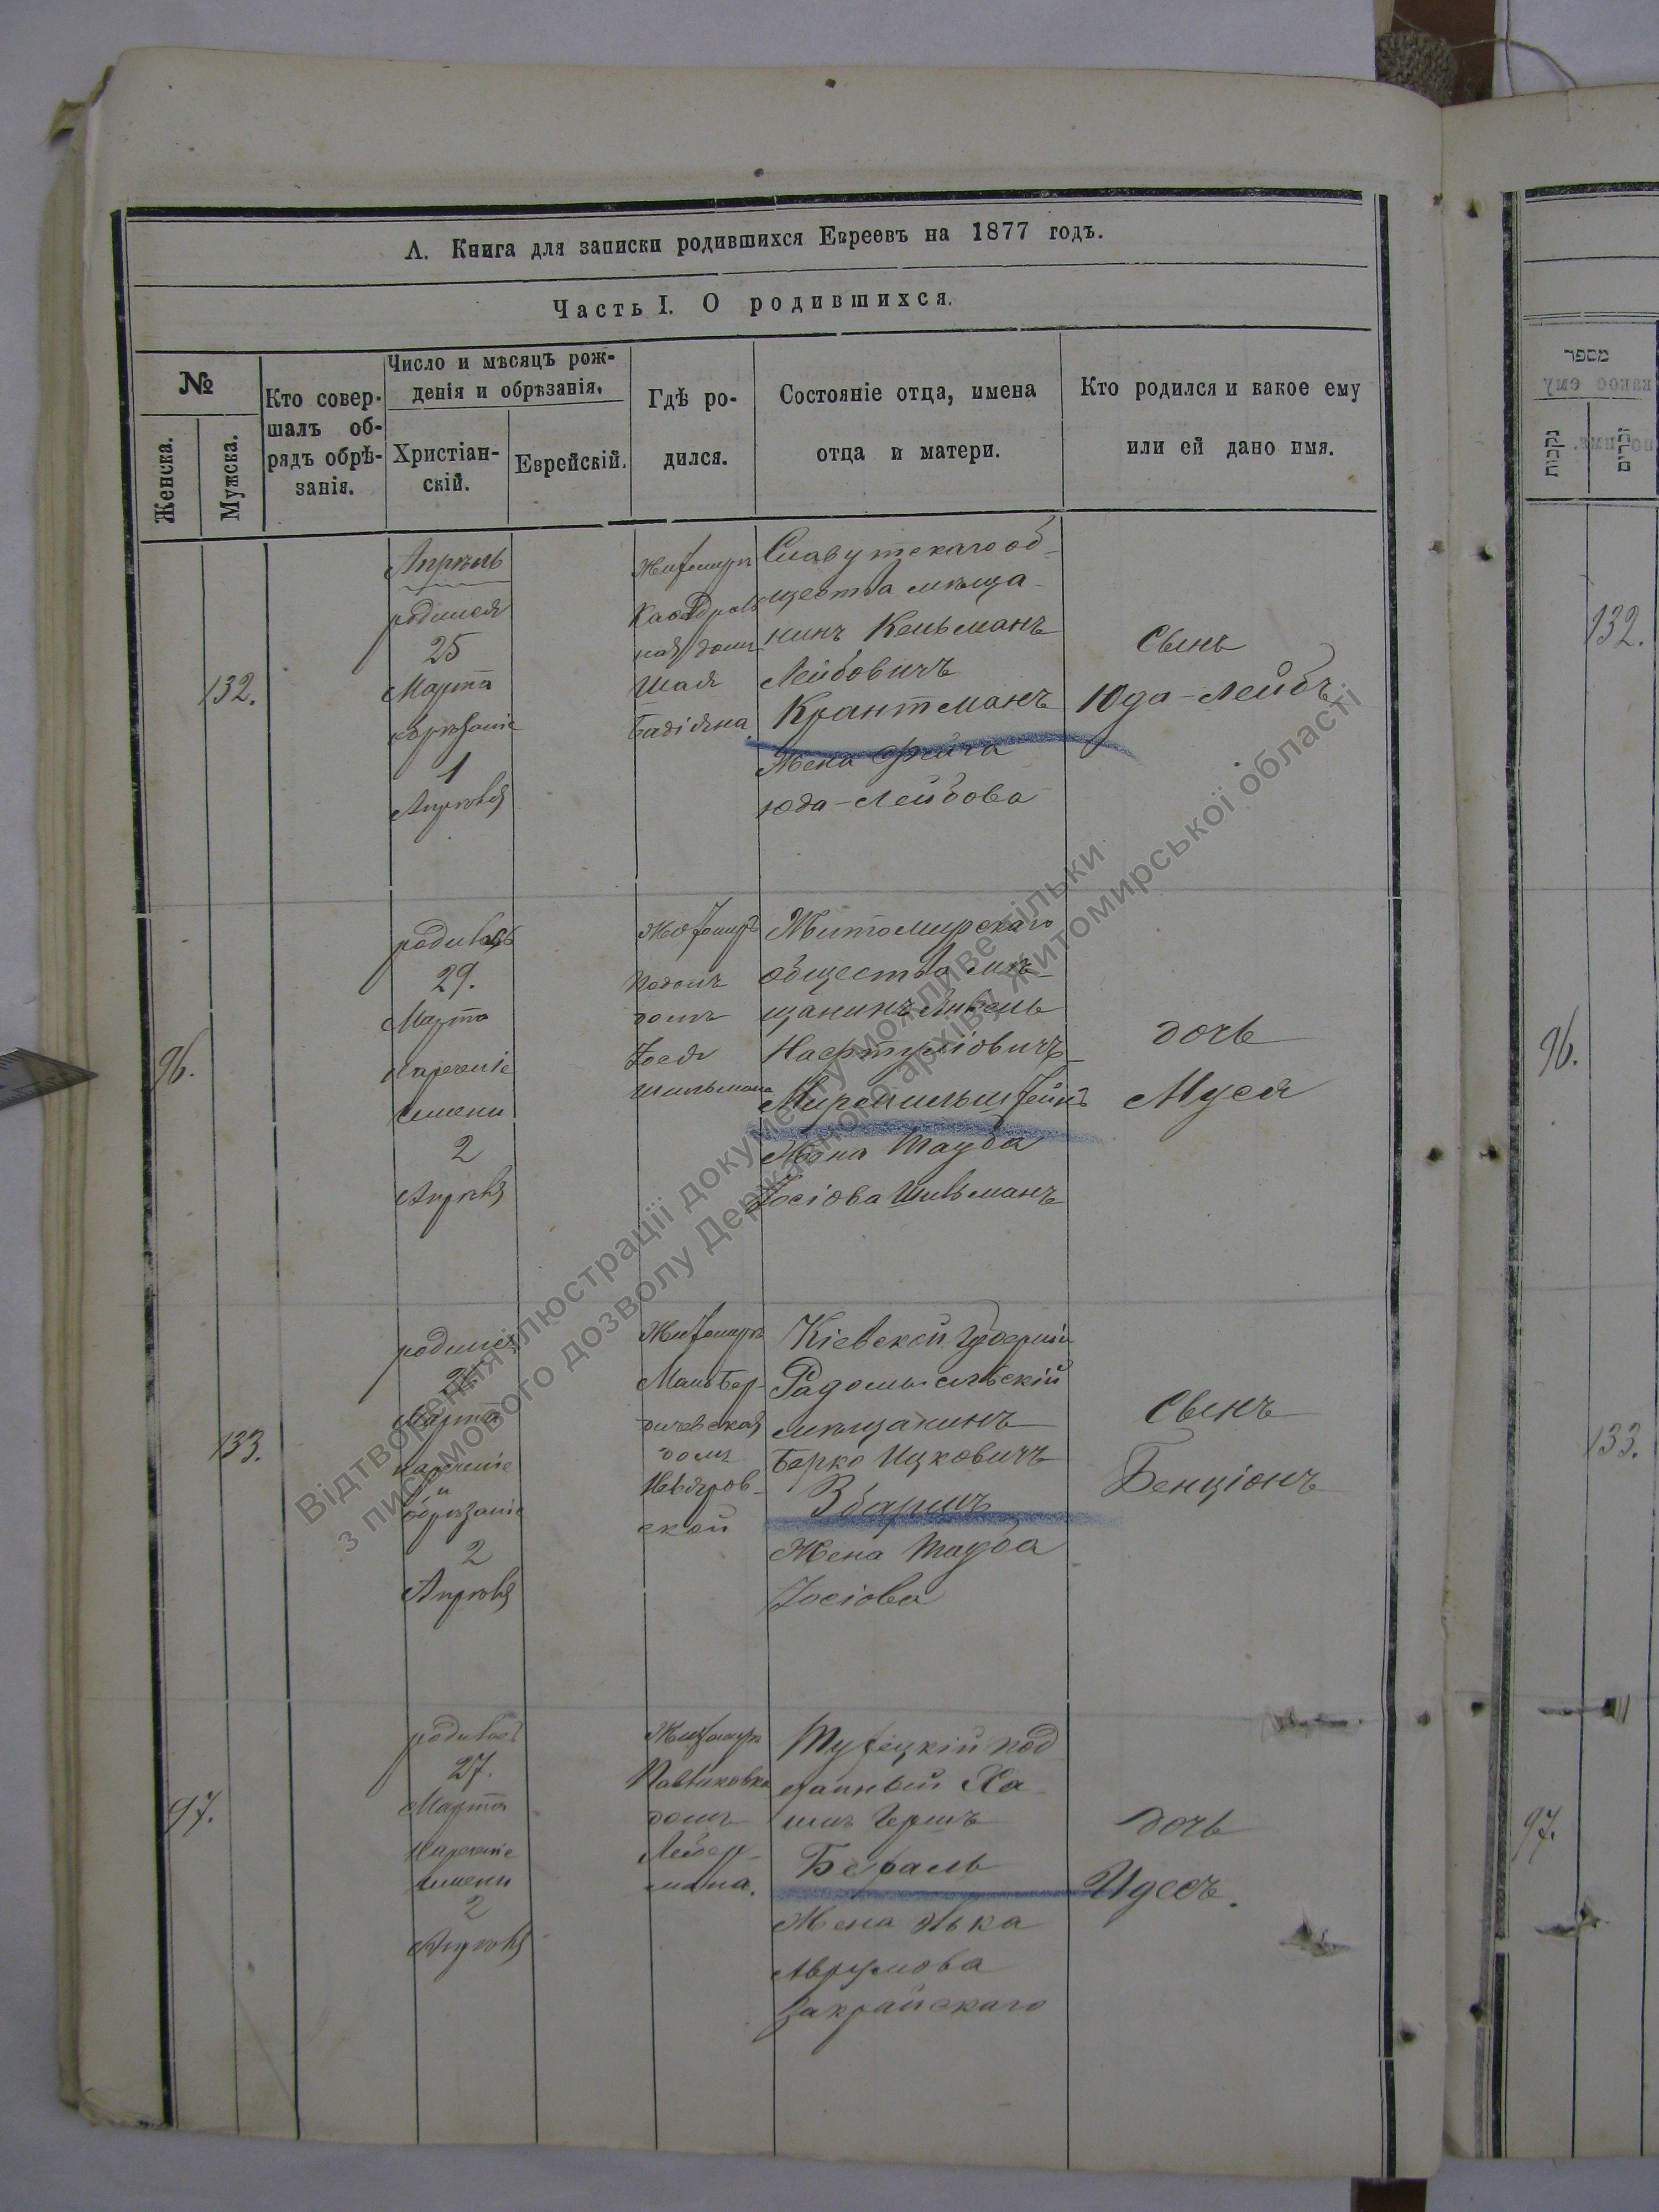 А. Книга для записки родившихся Евреевъ на 1877 годъ.
Часть I. О родившихся.
№
Женска.
Мужска.
Кто совер-
шалъ об-
рядъ обрѣ-
занія.
Число и мѣсяцъ рож-
денія и обрѣзанія.
Христіан-
скій.
Еврейскій.
Гдѣ ро-
дился.
Состояніе отца, имена
отца и матери.
Кто родился и какое ему
или ей дано имя.
132.
Апрѣль
родился
25
Марта
обрѣзаніе
1
Апрѣля
Житомиръ
домъ
Шая
Славутскаго об-
щества мѣща-
нинъ Кельманъ
Лейбовичъ
Крантманъ
Жена Фейга
Юда-Лейбова
Сынъ
Юда-Лейбъ
96.
родилась
29.
Марта
Нареченіе
имени
2
Апрѣля
Житомиръ
Подолъ
домъ
Іося
Шильмана
Житомирскаго
общества мѣ-
щанинъ
Нафтуліовичъ
Жена Тауба
Іосіова Шильманъ
дочь
Муся
133.
родился
Марта
нареченіе
и
обрѣзаніе
2
Апрѣля
Житомиръ
Мало Бер-
дичевская
домъ
ской
Кіевской Губерніи
Радомысльскій
мѣщанинъ
Берко Ицковичъ
Збаршъ
Жена Тауба
Іосіова
Сынъ
Бенціонъ
97.
родилась
27.
Марта
Нареченіе
имени
2
Апрѣля
Житомиръ
Павликовка
домъ
Лейбер-
мана.
Турецкій под
данный Ха
имъ Гершъ
Жена Элька
Аврумова
Закрайскаго
дочь
Идесъ.
מספר
נקבות
זכרים
132.
96.
133.
97.
Відтворення ілюстрації документу можливе тільки
з письмового дозволу Державного архіву Житомирської області